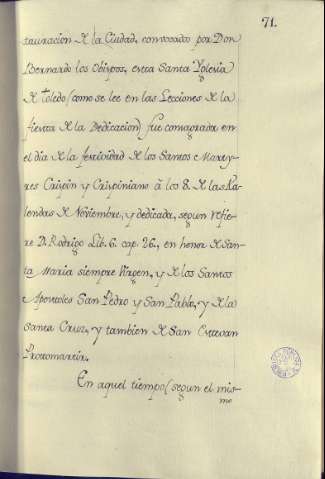 71.
tauracion de la Ciudad, convocados por Don
Bernardo los Obispos, esta Santa Yglesia
de Toledo (como se lee en las Lecciones de la
fiesta de la Dedicacion) fue consagrada en
el dia de la festividad de los Santos Marty-
res Crispin y Crispiniano à los 8. de las Ka-
lendas de Noviembre, y dedicada, segun refie-
re D. Rodrigo Lib. 6. cap. 26., en honor de San-
ta Maria siempre Virgen, y de los Santos
Apostoles San Pedro y San Pablo, y de la
Santa Cruz, y tambien de San Estevan
Protomartir.
En aquel tiempo (segun el mis-
mo